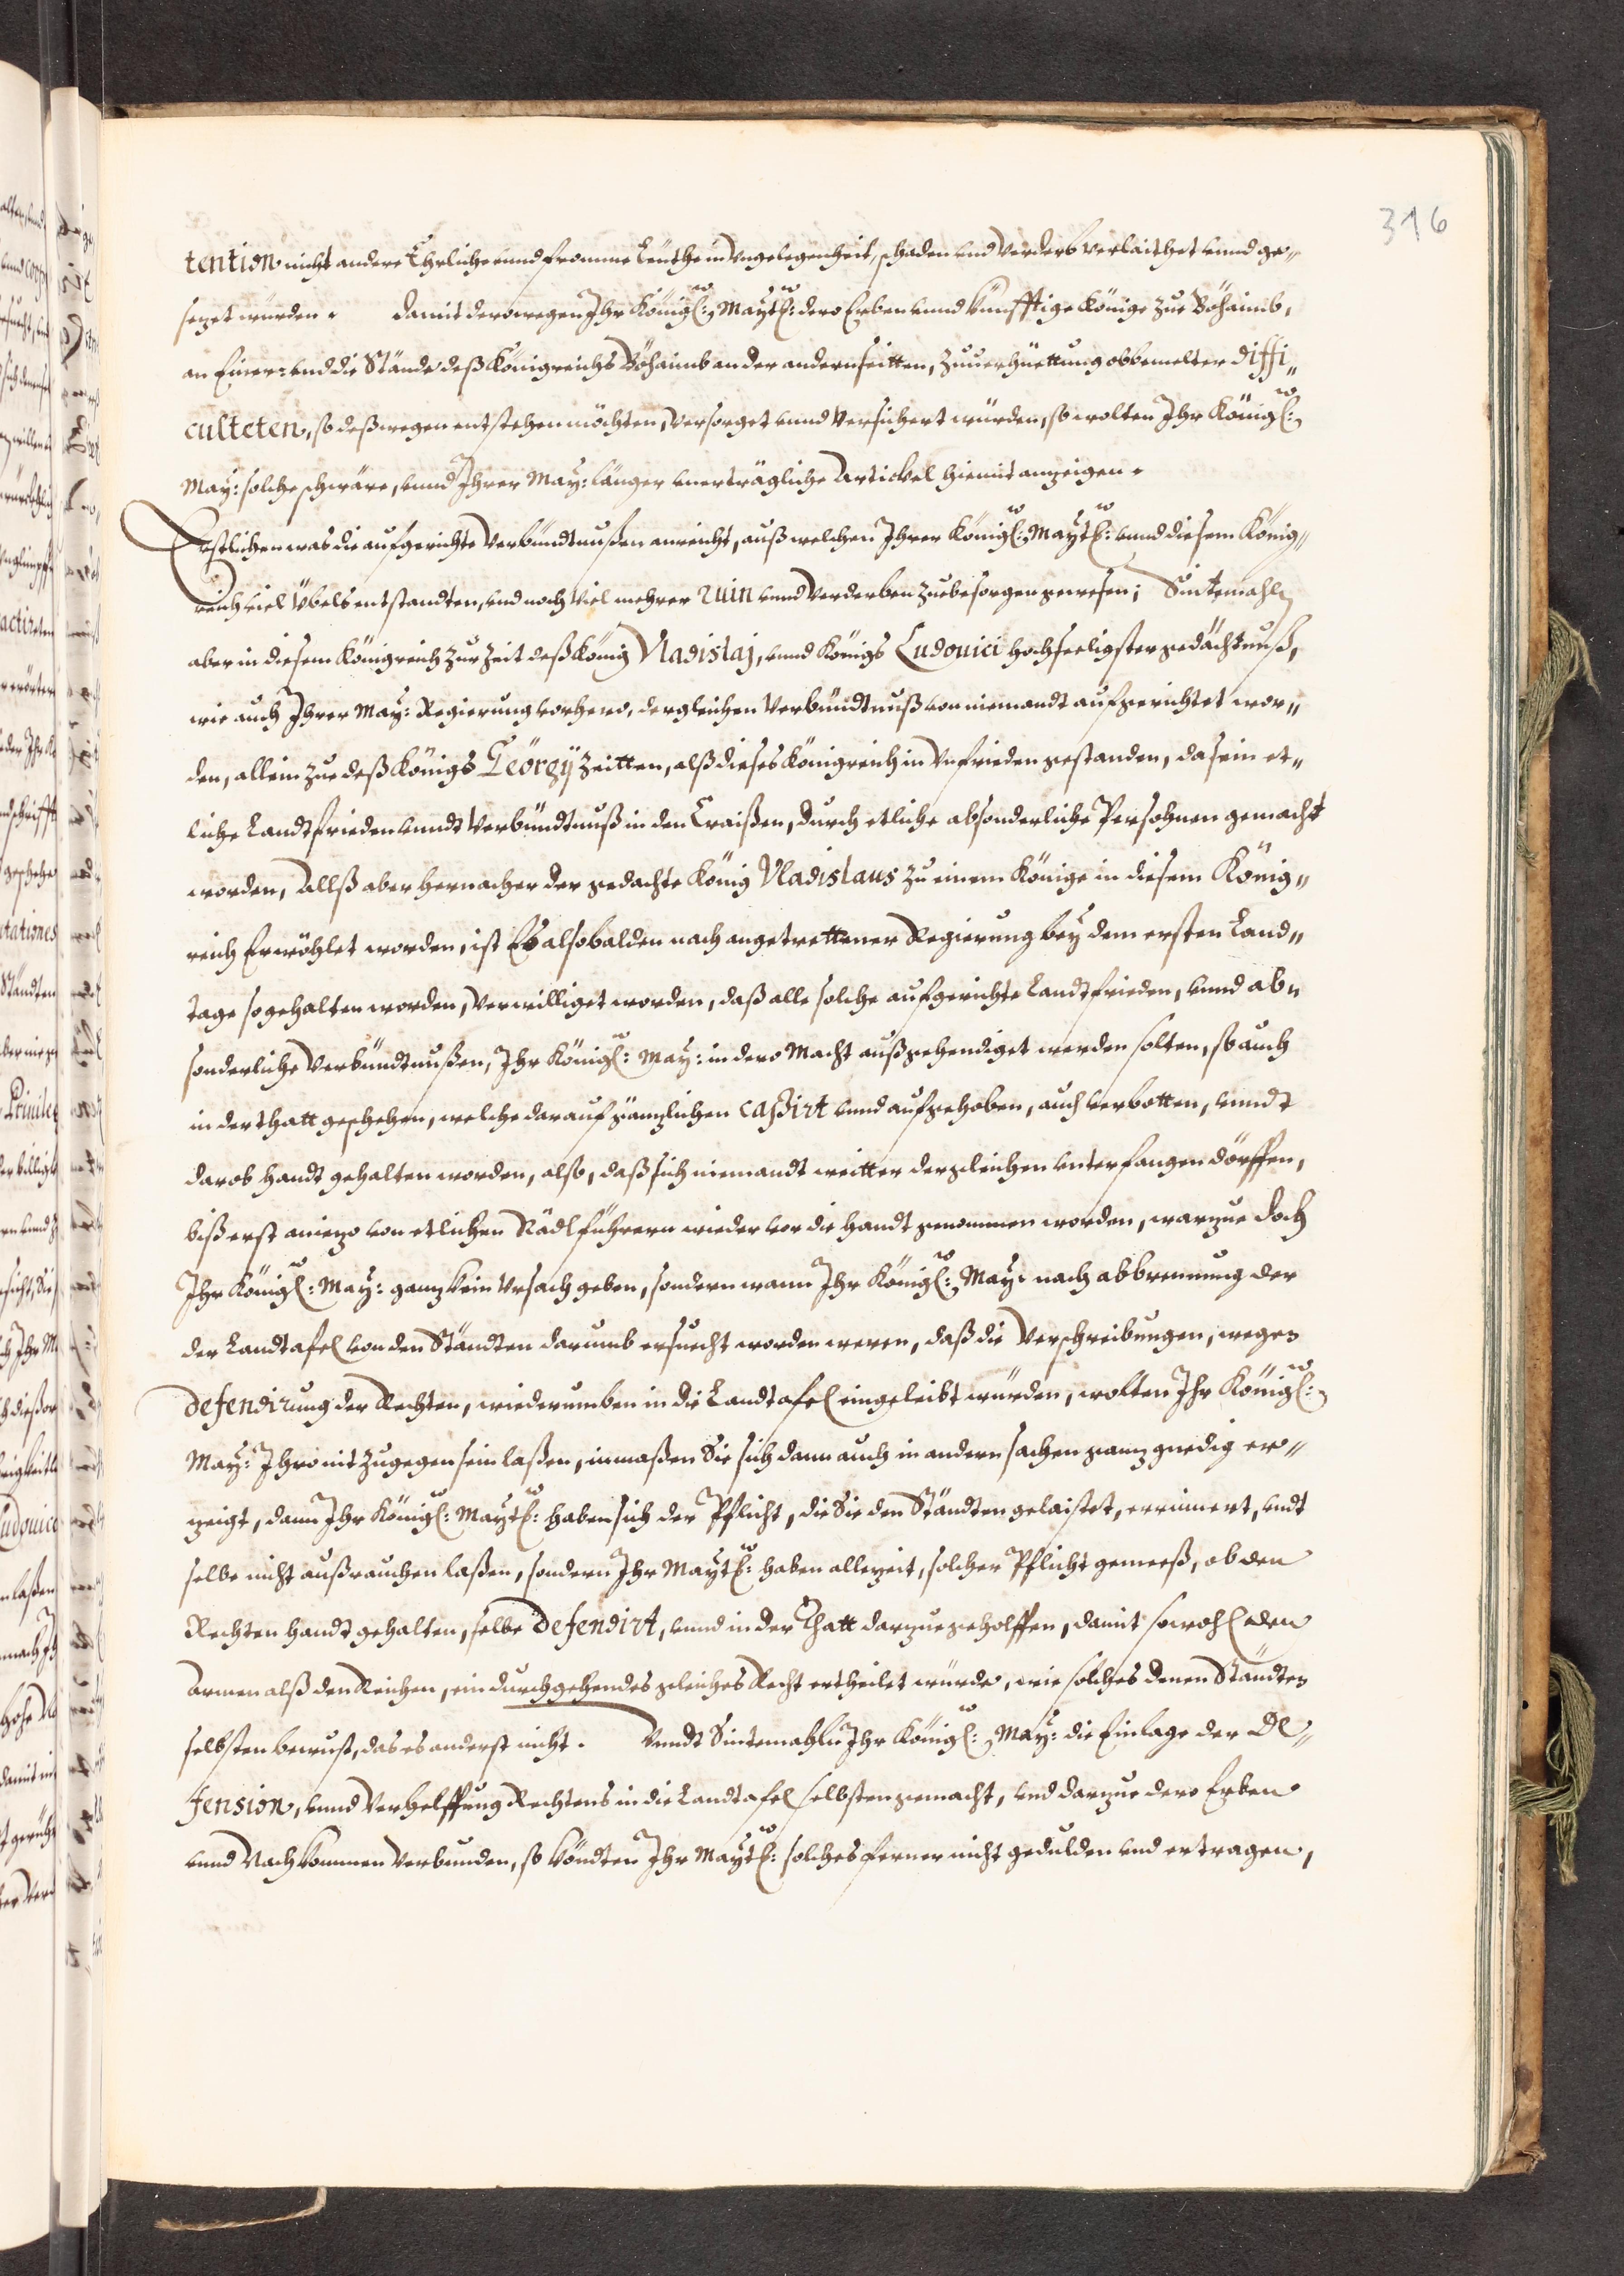 316
tention nicht andere Ehrliche vnnd fromme Leüthe in Vngelegenheit, schaden vnd Verderb verlaithet vnnd ge„
sezet würden. Damit derowegen Ihr Königl: Maytt: dero Erben vnnd künfftige Könige zue Böhaimb,
an Einer: vnd die Stände deß Königreichs Böhaimb an der andern seitten, zuuerhüettung obbemelter diffi„
culteten, so deßwegen entstehen möchten, Versorget vnnd Versichert würden, so wolten Ihr Königl:
May: solche schwäre, vnnd Ihrer May: länger vnerträgliche Artickel hiemit anzeigen.
Erstlichen was die aufgerichte Verbündtnußen anreicht, auß welchen Ihrer Königl: Maytt: vnnd diesem König„
reich viel Übels entstandten, vnd noch Viel mehrer ruin vnnd Verderben zuebesorgen gewesen; Sintemahln
aber in diesem Königreich zur Zeit deß König Vladislaj, vnnd Königs Ludouici hochseeligster gedächtnuß,
wie auch Ihrer May: Regierung vorhero, dergleichen Verbündtnuß von niemandt aufgerichtet wor„
den, allein zue deß Königs Geörgÿ Zeitten, alß dieses Königreich in Vnfrieden gestanden, da sein et„
liche Landtfrieden vnndt Verbündtnuß in den Craißen, durch etliche absonderliche Persohnen gemacht
worden, Allß aber hernacher der gedachte König Vladislaus zu einem Könige in diesem König„
reich Erwöhlet worden, ist Es alsobalden nach angetrettener Regierung bey dem ersten Land„
tage so gehalten worden, Verwilliget worden, daß alle solche aufgerichte Landtfrieden, vnnd ab„
sonderliche Verbündtnußen, Ihr Königl: May: in dero Macht außgehendiget werden solten, so auch
in der thatt geschehen, welche darauf gänzlichen caßirt vnnd aufgehoben, auch verbotten, vnndt
darob handt gehalten worden, also, daß sich niemandt weitter dergleichen vnterfangen dörffen,
biß erst aniezo von etlichen Rädlführern wieder vor die handt genommen worden, warzue doch
Ihr Königl: May: ganz kein Vrsach geben, sondern wann Ihr Königl: May: nach abbrennung der
der Landtafel von den Ständten darumb ersuecht worden weren, daß die Verschreibungen, wegen
defendirung der Rechten, wiederumben in die Landtafel eingeleibt würden, wolten Ihr Königl:
May: Ihro nit zugegen sein laßen, inmaßen Sie sich dann auch in andern sachen ganz gnedig er„
zeigt, dann Ihr Königl: Maytt: haben sich der Pflicht, die Sie den Ständten gelaistet, erinnert, vndt
selbe nicht außrauchen laßen, sondern Ihr Maytt: haben allezeit, solcher Pflicht gemeeß, ob den
Rechten handt gehalten, selbe defendirt, vnnd in der Thatt darzue geholffen, damit sowohl den
Armen alß den Reichen, ein durchgehendes gleiches Recht ertheilet würde, wie solches denen Ständten
selbsten bewust, das es anderst nicht. Vnndt Sintemahln Ihr Königl: May: die Einlage der De„
fension, vnnd Verhelffung Rechtens in die Landtafel selbsten gemacht, vnd darzue dero Erben
vnnd Nachkommen Verbunden, so köndten Ihr Maytt: solches ferner nicht gedulden vnd ertragen,